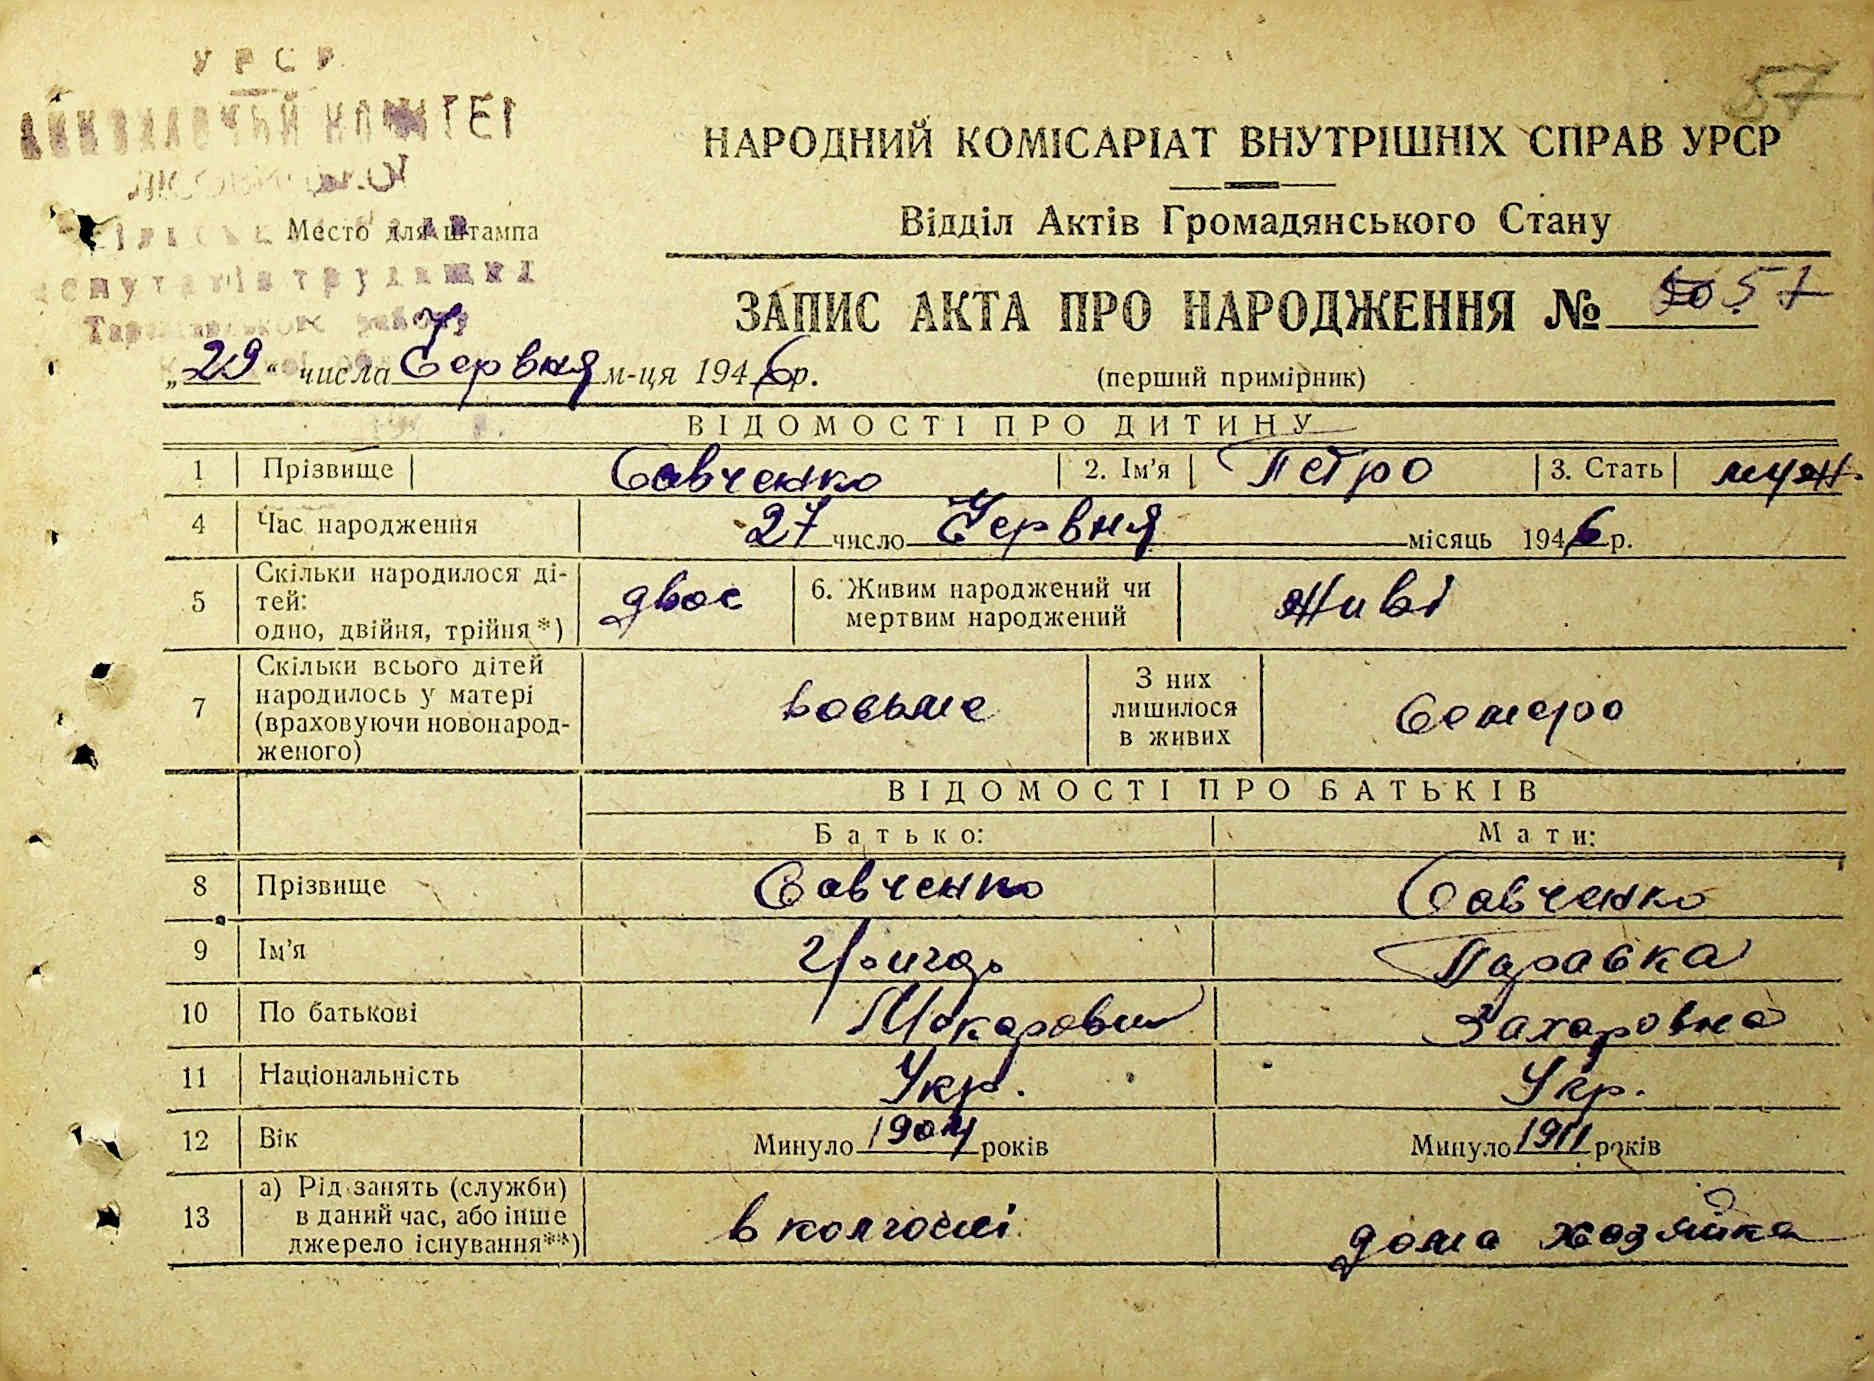 57
УРСР
НАРОДНИЙ КОМІСАРІАТ ВНУТРІШНІХ СПРАВ УРСР
Место для штампа
Відділ Актів Громадянського Стану
ЗАПИС АКТА ПРО НАРОДЖЕННЯ № 57
„29“ числа Червня м-ця 1946р.
(перший примірник)
ВІДОМОСТІ ПРО ДИТИНУ
1 Прізвище Савченко 2. Ім'я Петро 3. Стать муж.
4 Час народження 27 число Червня місяць 1946р.
5 Скільки народилося ді-
тей:
одно, двійня, трійня*) двое 6. Живим народжений чи
мертвим народжений живі
7 Скільки всього дітей
народилось у матері
(враховуючи новонарод-
женого) восьме З них
лишилося
в живих Семеро
ВІДОМОСТІ ПРО БАТЬКІВ
Батько: Мати:
8 Прізвище Савченко Савченко
9 Ім'я Григор Параска
10 По батькові Макарович Захаровна
11 Національність Укр. Укр.
12 Вік Минуло 1904 років Минуло 1911 років
13 а) Рід занять (служби)
в даний час, або інше
джерело існування**) в колгоспі дома хозяйка